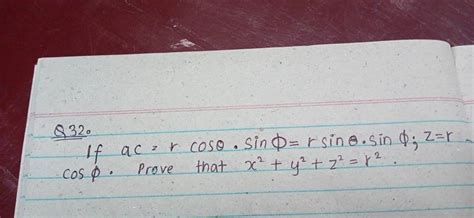 Q32.
If ac = r cosθ . sin Φ = r sin θ. sin ϕ; z=r
cos ϕ. Prove that x² + y² + z² = r².